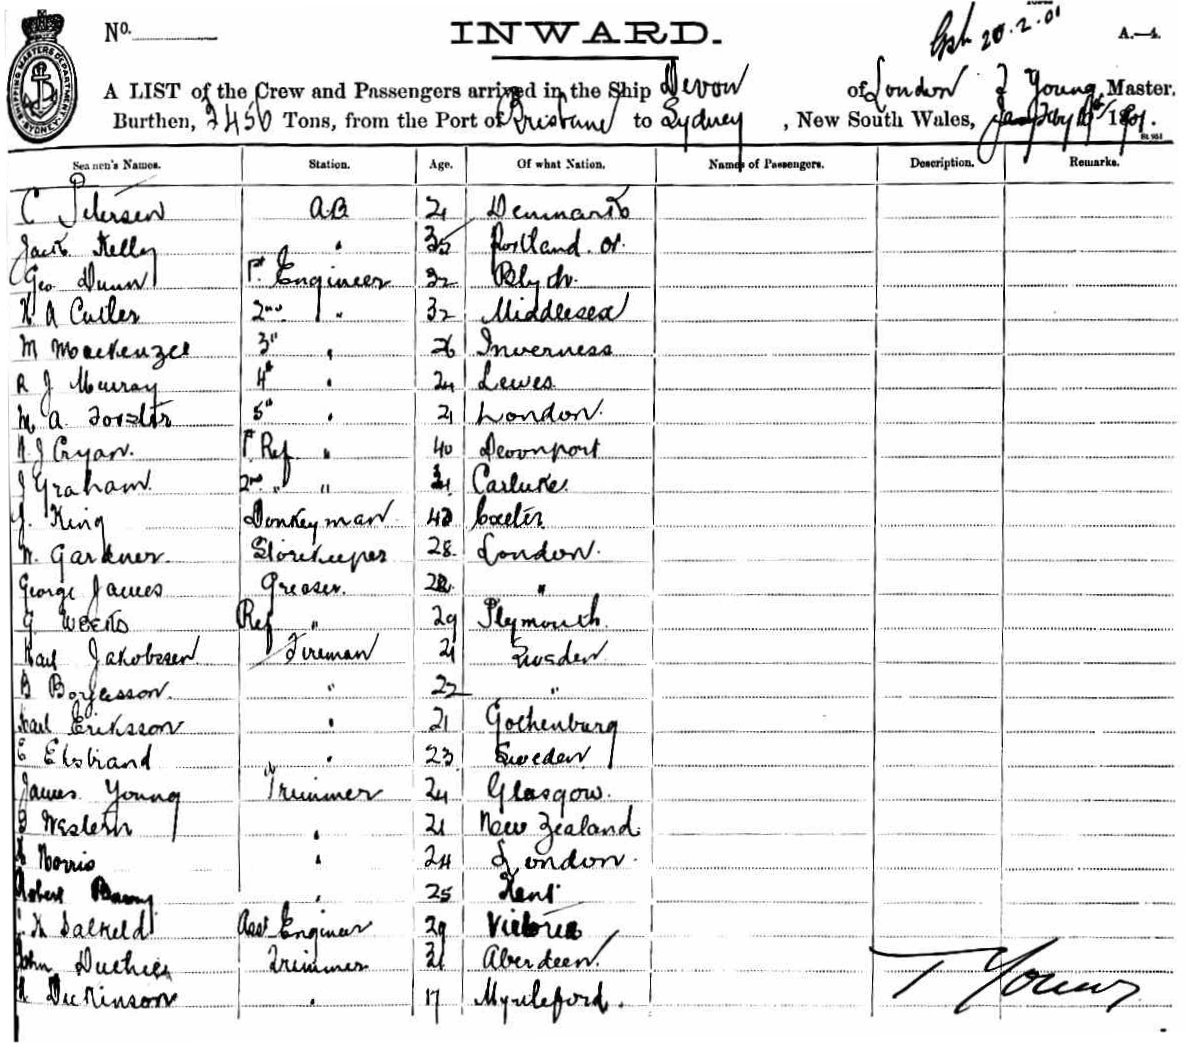 No.
INWARD.
20.2.01
A.—4.
SHIPPING MASTERS DEPARTMENT SYDNEY
A LIST of the Crew and Passengers arrived in the Ship Devon of London T Young, Master,
Burthen, Tons, from the Port of Brisbane to Sydney, New South Wales,
Seamen's Names. Station. Age. Of what Nation. Names of Passengers. Description. Remarks.
C Petersen A.B 21 Denmark
Jack Kelly " 35 Portland. Or.
Geo Dunn 1st Engineer 32 Blyth.
H A Cutler 2nd " 32 Middlesex
M Mackenzie 3" " 26 Inverness
R J Murray 4th " 24 Lewes
M A Forster 5th " 21 London.
Cryan. 1st Ref " 40 Devonport
J Graham. 2nd " " Carluke.
J. King Donkeyman 42 Exeter
W. Gardner. Storekeeper 28 London.
George James Greaser. "
G Weeks Ref " 29 Plymouth
Karl Jakobssen Fireman 21 Sweden
B Borjesson. " 22 "
Karl Eriksson " 21 Gothenburg
E Ekstrand " 23 Sweden
James Young Trimmer 24 Glasgow.
Western " 21 New Zealand
Norris " 24 London.
Robert " 25 Kent
H Salkeld Asst Engineer 29 Victoria
John Duthie Trimmer 21 Aberdeen.
Dickinson " 17 Myrtleford.
T Young